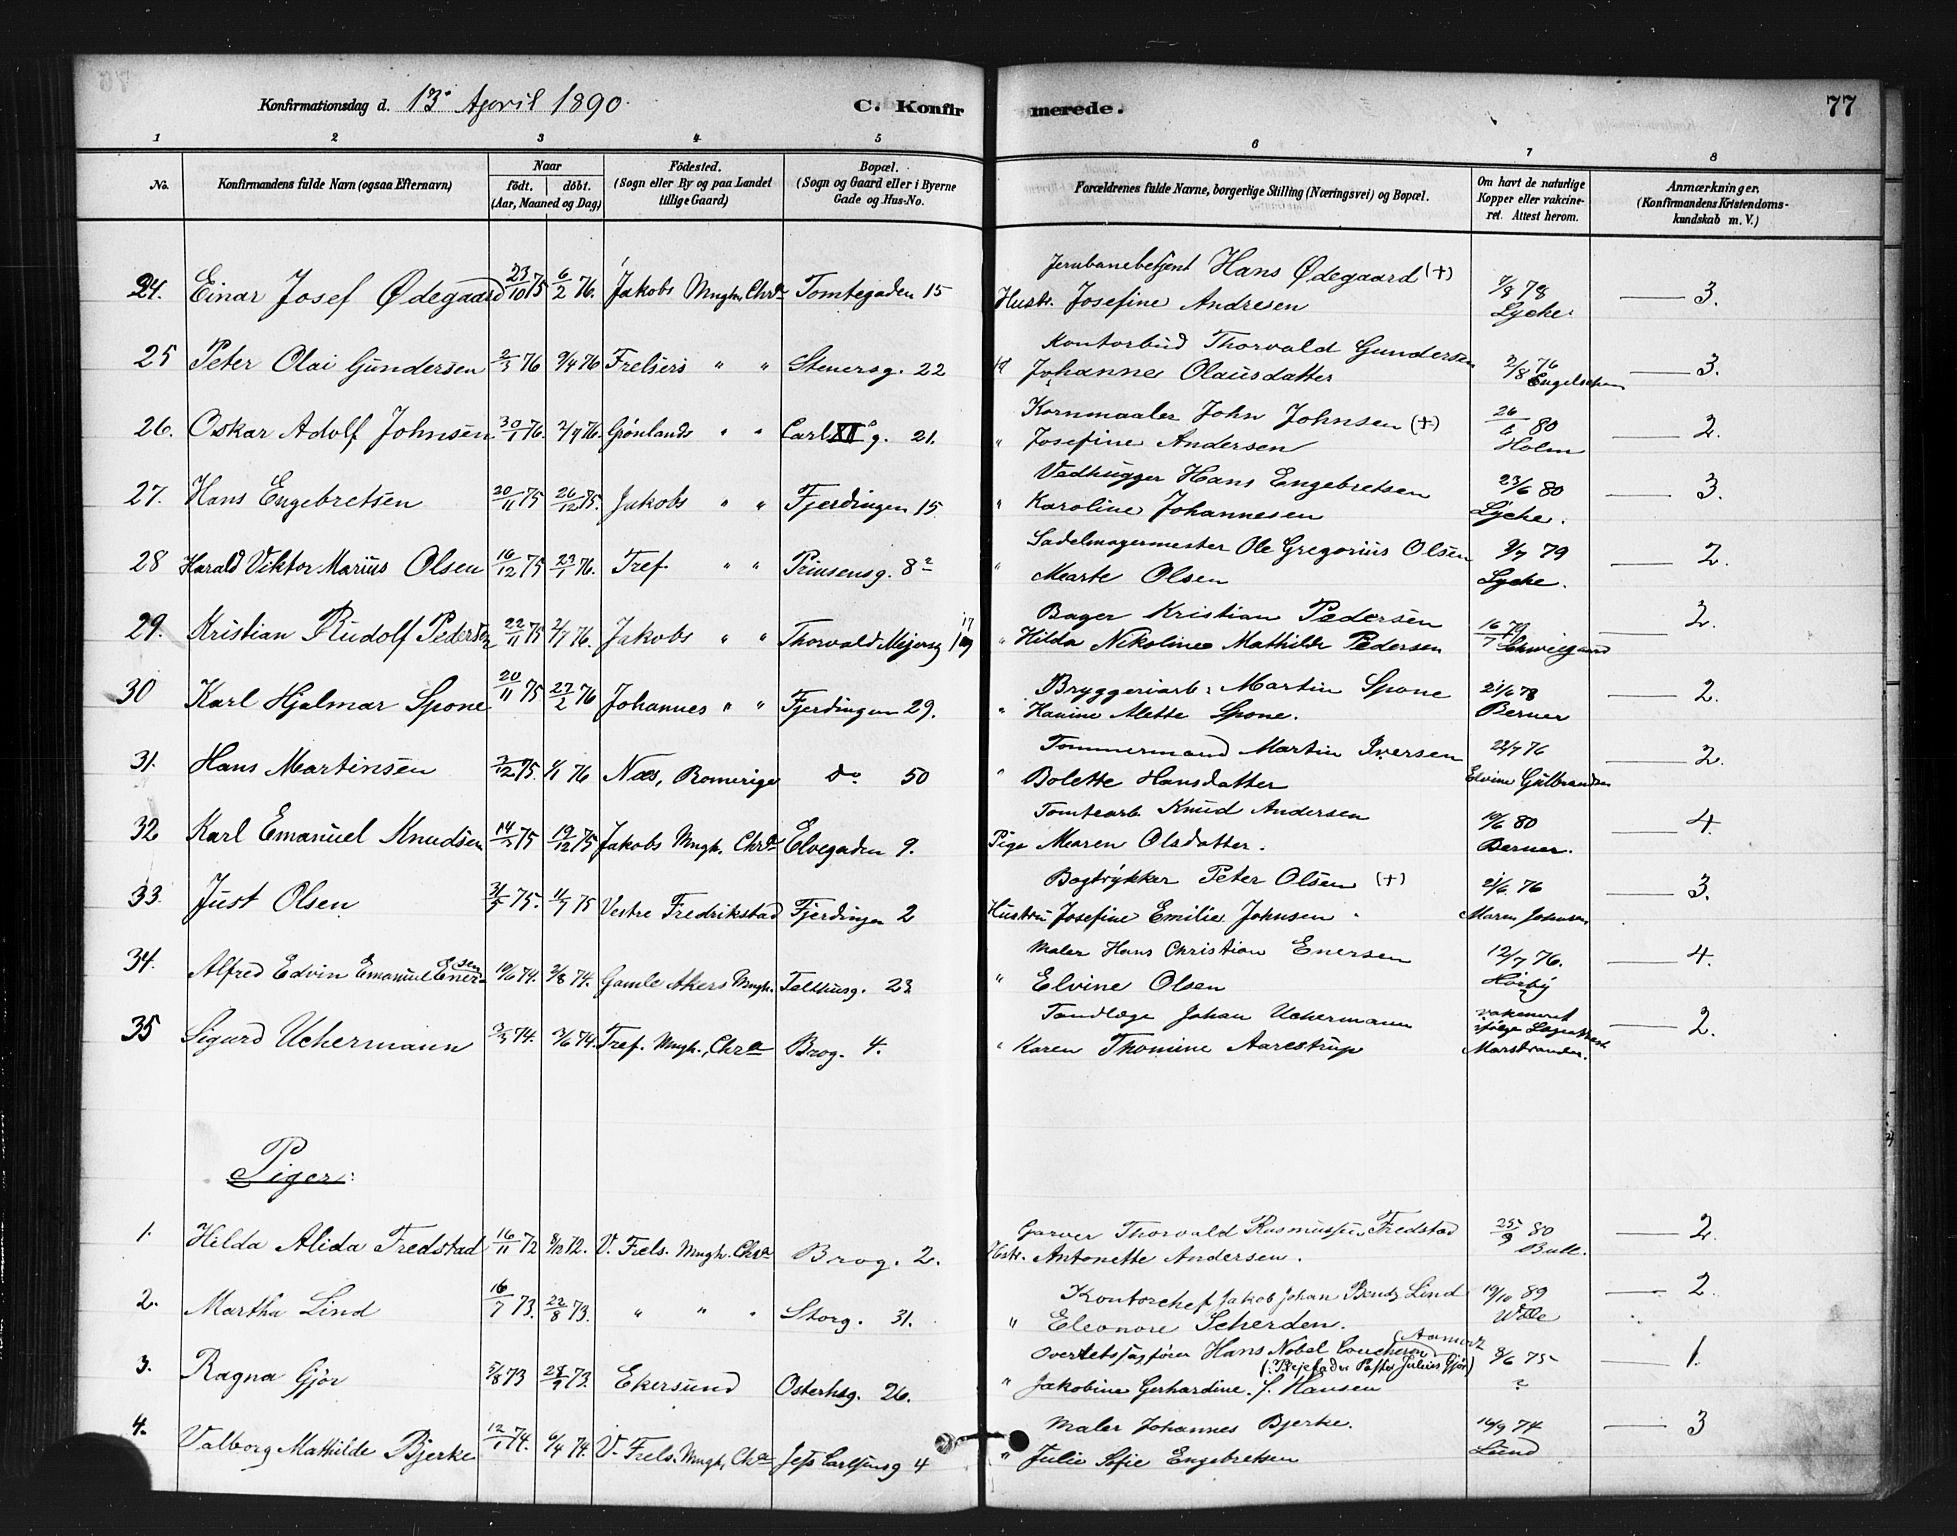 Konfirmationsdag d. 13de April 1890. C. Konfirmerede. 77
1 2 3 4 5 6 7 8
No. Konfirmandens fulde Navn (ogsaa Efternavn) Naar født. døbt. (Aar, Maaned og Dag) Fødested. (Sogn eller By og paa Landet tillige Gaard) Bopæl. (Sogn og Gaard eller i Byerne Gade og Hus-No. Forældrenes fulde Navne, borgerlige Stilling (Næringsvei) og Bopæl. Om havt de naturlige Kopper eller vakcineret. Attest herom. Anmærkninger. (Konfirmandens Kristendomskundskab m. V.)
24. Einar Josef Ødegaard 23/10 75 6/2 76. Jakobs Mngh. Chra Tomtegaden 15 Jernbanebetjent Hans Ødegaard (+) 7/8 78 3.
Hustr. Josefine Andresen Lyche.
25 Peter Olai Gundersen 2/3 76 9/4 76 Frelsers " " Stenersg. 22 Kontorbud Thorvald Gundersen 2/8 76 3.
Johanne Olausdatter Engelschøn
26. Oskar Adolf Johnsen 30/1 76. 2/9 76. Grønlands " " Carl XII g. 21. Kornmaaler John Johnsen (+) 26/6 80 2.
" Josefine Andersen Holm
27. Hans Engebretsen 20/11 75 26/12 75. Jakobs " " Fjerdingen 15. Vedhugger Hans Engebretsen 23/6 80 3.
" Karoline Johannesen Lyche.
28 Harald Viktor Marius Olsen 16/12 75 23/1 76. Tref. " " Prinsensg. 8a Sadelmagermester Ole Gregorius Olsen 9/7 79 2.
" Marte Olsen Lyche.
29. Kristian Rudolf Pedersen 22/11 75 2/7 76. Jakobs " " Thorvald Mejersg 17 Bager Kristian Pedersen 16/7 79 2.
" Hilda Nikoline Mathilde Pedersen Schwiegaard
30 Karl Hjalmar Spone 20/11 75 27/2 76 Johannes " " Fjerdingen 29. Bryggeriarb: Martin Spone 21/6 78 2.
" Hanine Alette Spone. Berner
31. Hans Martinsen 2/12 75. 6/1 76 Næs, Romerige do 50 Tømmermand Martin Iversen 22/7 76 2.
" Bolette Hansdatter Elvine Gulbrandsen
32 Karl Emanuel Knudsen 14/2 75 19/12 75 Jakobs Mngh. Chra Elvegaden 9. Tomtearb Knud Andersen 19/6 80 4.
Pige Maren Olsdatter. Berner.
33. Just Olsen 31/5 75. 11/7 75 Vestre Fredrikstad Fjerdingen 2 Bogtrykker Peter Olsen (+) 21/6 76 3.
Hustru Josefine Emilie Johnsen Maren Johnsen
34. Alfred Edvin Emanuel Enersen 19/6 74. 2/8 74. Gamle Akers Mngh. Telthusg. 23 Maler Hans Christian Enersen 12/7 76. 4.
" Elvine Olsen Hørby
35 Sigurd Uchermann 2/3 74. 3/6 74. Tref. Mngh., Chra Brog. 4. Tandlæge Johan Uchermann vakcineret 2.
" Karen Thomine Aarestrup ifølge Lægeattest
Marstrander.
Piger:
1. Hilda Alida Fredstad 16/11 72 8/12 72. V. Frels. Mngh. Chra Brog. 2. Garver Thorvald Rasmussen Fredstad 25/9 80 2.
Hstr. Antonette Andersen. Bull.
2. Martha Lind 16/7 73. 22/8 73. " " " Storg. 31. Kontorchef Jakob Johan Bendz Lind 19/10 89 2.
" Eleonore Scherden. Wille
3. Ragna Gjør 5/8 73 28/9 73. Ekersund Osterhsg. 26. Overretssagfører Hans Nobel 8/6 75 1.
(Plejefader Pastor Julius Gjør)
" Jakobine Gerhardine f. Hansen ?
4. Valborg Mathilde Bjerke 12/1 74. 6/4 74. V. Frels. Mngh. Chra Jess Carlsensg 4 Maler Johannes Bjerke. 16/9 74 3
" Julie Sofie Engebretsen Lund